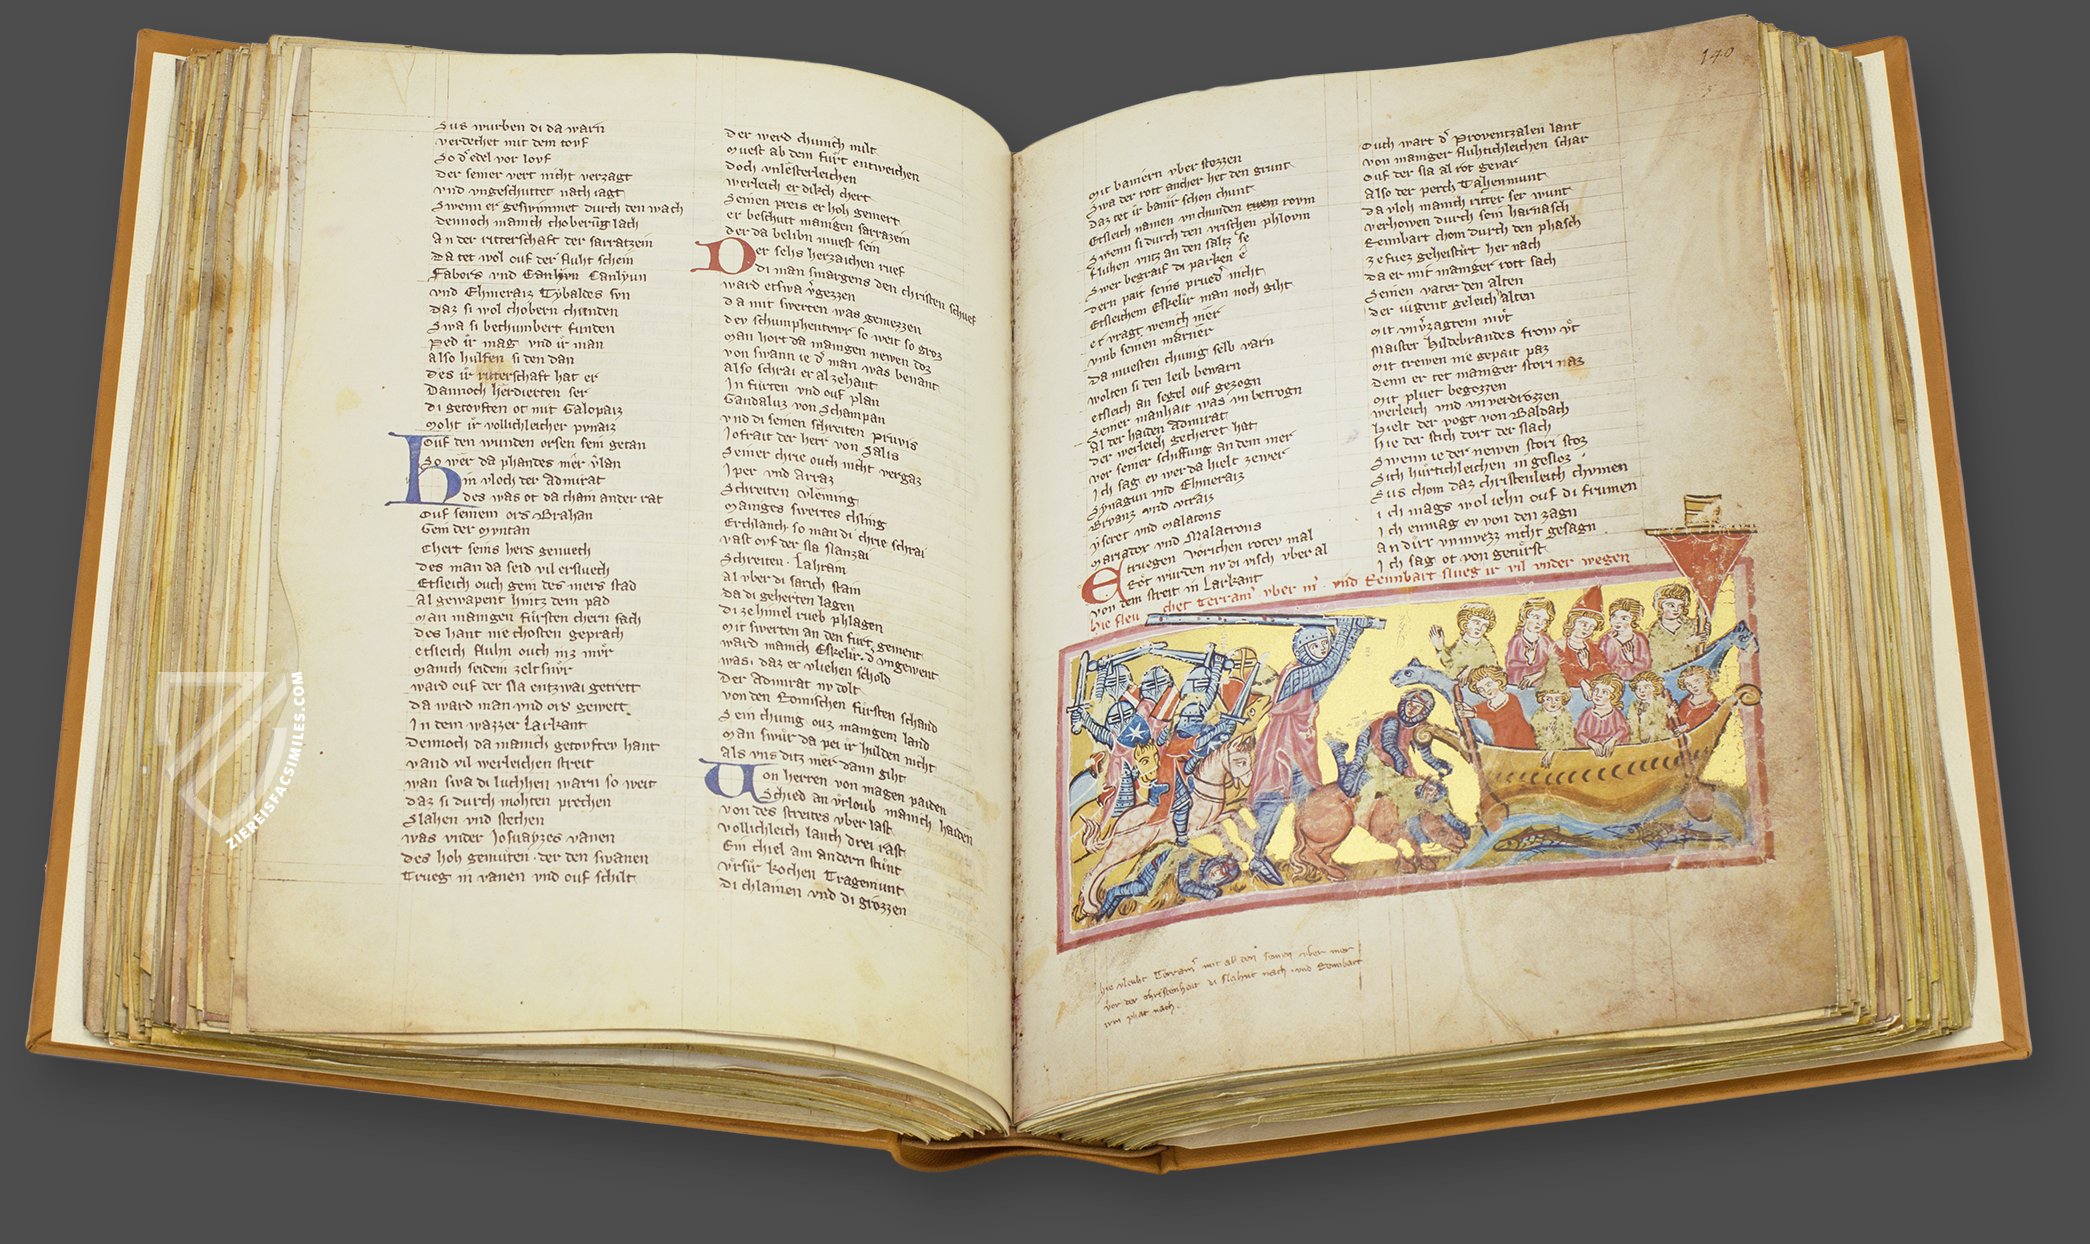 Sus wurben di da warn
verdechet mit dem toyf
So d' edel vor loyf
der seiner vert nicht verzagt
vnd vngeschuttet nach iagt
Swenn er geswimmet durch den wach
dennoch manich choberung lach
An der ritterschaft der sarratzein
da tet wol ouf der fluht schein
Fabors vnd Canlyun
vnd Ehmeraiz Tybaldes svn
daz si wol chobern chunden
Swa si bechumbert funden
Ped ir mag vnd ir man
also hulfen si den dan
des ir ritterschaft hat er
Dannoch herdierten ser
di getoyften ot mit Galopaiz
moht ir vollichleicher pynaiz
ouf den wunden orsen sein getan
So wer da phandes mer v'lan
Hin vloch der Admirat
des was ot da cham ander rat
Ouf seinem ors Brahan
Gein der Myntan
Chert seins hers genuech
des man da seid vil ersluech
Etsleich ouch gein des mers stad
Al gewapent hintz dem pad
Man manigen fursten chern sach
des hant nie chosten geprach
etsleich fluhn ouch in'z mur
Manich seidem zeltsnur
ward ouf der sla entzwai getrett
da ward man vnd ors gewett
In dem wazzer Larkant
Dennoch da manich getoyftev hant
vand vil werleichen streit
wan swa di luchhen warn so weit
daz si durch mohten prechen
Slahen vnd stechen
was vnder Josuayzes vanen
des hoh gemuten der den swanen
Trueg in vanen vnd ouf schilt
der werd chunich milt
Muest ab dem furt entweichen
doch vnlesterleichen
werleich er dikch chert
Seinen preis er hoh gemert
er beschutt manigen sarrazein
der da belibn muest sein
Der sehs herzaichen ruef
di man smargens den christen schuef
ward etswa v'gezzen
da mit swerten was gemezzen
dev schumphentewr so weit so groz
Man hort da manigen newen doz
von swann ie d' man was benant
also schrai er alzehant
In furten vnd ouf plan
Gaudaluz von Schampan
vnd di seinen schreiten Pruvis
Jofrait der herr von Salis
Seiner chrie ouch nicht vergaz
Iper vnd Arraz
Schreiten vleming
Maniges swertes chling
Erchlanch so man di chrie schrai
vast ovf der sla slanzai
Schreiten Lahram
al vber di sarich stain
da di geherten lagen
di zehimel rueb phlagen
Mit swerten an den furt gement
ward manich Eskelir d' vngewent
was daz er vliehen schold
Der Admirat nv dolt
von den Romischen fursten schand
Sein chunig ouz manigem land
Man swur da pei ir hilden nicht
als vns ditz mer dann giht
Von herren von magen paiden
Schied an v'rloub manich haiden
von des streites vber last
vollichleich lanch drei rast
Ein chiel am andern stunt
vrsur kochen Tragemunt
di chlainen vnd di grozzen
140
Mit baniern vber stozzen
Swa der rott ancher het den grunt
daz tet ir banir schon chunt
Etsleich namen vn chunden rovm
Swenn si durch den vrischen phlovm
fluhen vntz an den saltz se
Swer begraif di parken e
dern pait seins prued' nicht
Etsleichem Eskelir man noch giht
er vragt wenich mer
vmb seinen marner
da muesten chunig selb varn
wolten si den leib bewarn
etsleich an segel ouf gezogn
Seiner manhait was vn betrogn
Al der haiden Admirat
der werleich gecheret hat
vor seiner schiffung an dem mer
Ich sag ev wer da hielt zewer
Synagun vnd Ehmeraiz
Bryanz vnd vtraiz
yseret vnd Malatons
Mariadox vnd Malatrons
Etruegen vorichen rotev mal
Rot wurden nv di visch vber al
von dem streit in Larkant
Ouch wart d' Proventzalen lant
von maniger fluhtichleichen schar
ouf der sla al rot gevar
Also der perch Tahenmunt
da vloh manich ritter ser wunt
verhowen durch sein harnasch
Rennbart chom durch den phasch
zefuez geheistirt her nach
da er mit maniger rott sach
Seinen vater den alten
der iugent geleich alten
Mit vnv'zagtem mut
Maister Hildebrandes frow vt
Mit trewen nie gepait paz
denn er tet maniger stori naz
Mit pluet begozzen
werleich vnd vnverdrozzen
Hielt der vogt von Baldach
hie der stich dort der slach
Swenn ie der newen stori stoz
Sich hurtichleichen in gesloz
Sus chom daz christenleich chymen
ich mags wol iehn ouf di frumen
Ich enmag ev von den zagn
An durr vnmuezz nicht gesagn
Ich sag ot von geturst
hie fleu chet Terram' vber m' vnd Rennbart slueg ir vil vnder wegen
hie vleuht Terram' mit al den seinen vber mer
vor der christenheit di slahent nach vnd Rennbart
im phat nach.
ZIEREISFACSIMILES.COM